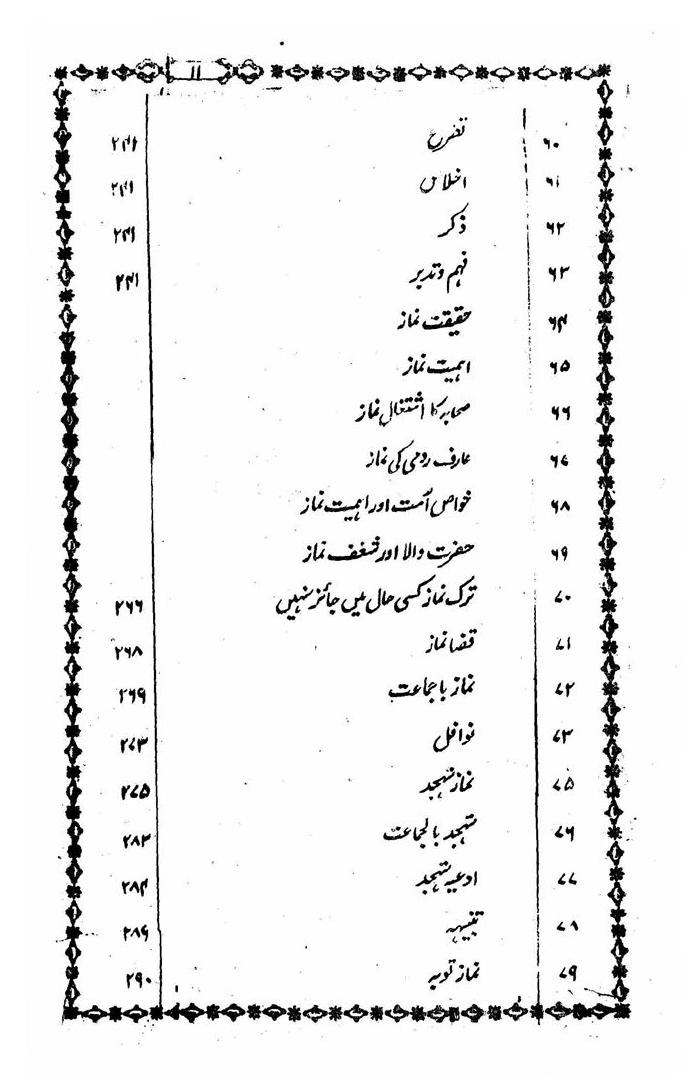 ۱۱
۶۰ تضرع ۲۴۱
۶۱ اخلاص ۲۴۱
۶۲ ذکر ۲۴۱
۶۳ فہم و تدبر ۲۴۱
۶۴ حقیقت نماز
۶۵ اہمیت نماز
۶۶ صحابہ کا اشتغال نماز
۶۷ عارف رومی کی نماز
۶۸ خواص اُمت اور اہمیت نماز
۶۹ حضرت والا اور شغف نماز
۷۰ ترک نماز کسی حال میں جائز نہیں ۲۶۶
۷۱ قضا نماز ۲۶۸
۷۲ نماز باجماعت ۲۶۹
۷۳ نوافل ۲۷۳
۷۵ نماز تہجد ۲۷۵
۷۶ تہجد بالجماعت ۲۸۳
۷۷ ادعیہ تہجد ۲۸۴
۷۸ تنبیہہ ۲۸۹
۷۹ نماز توبہ ۲۹۰